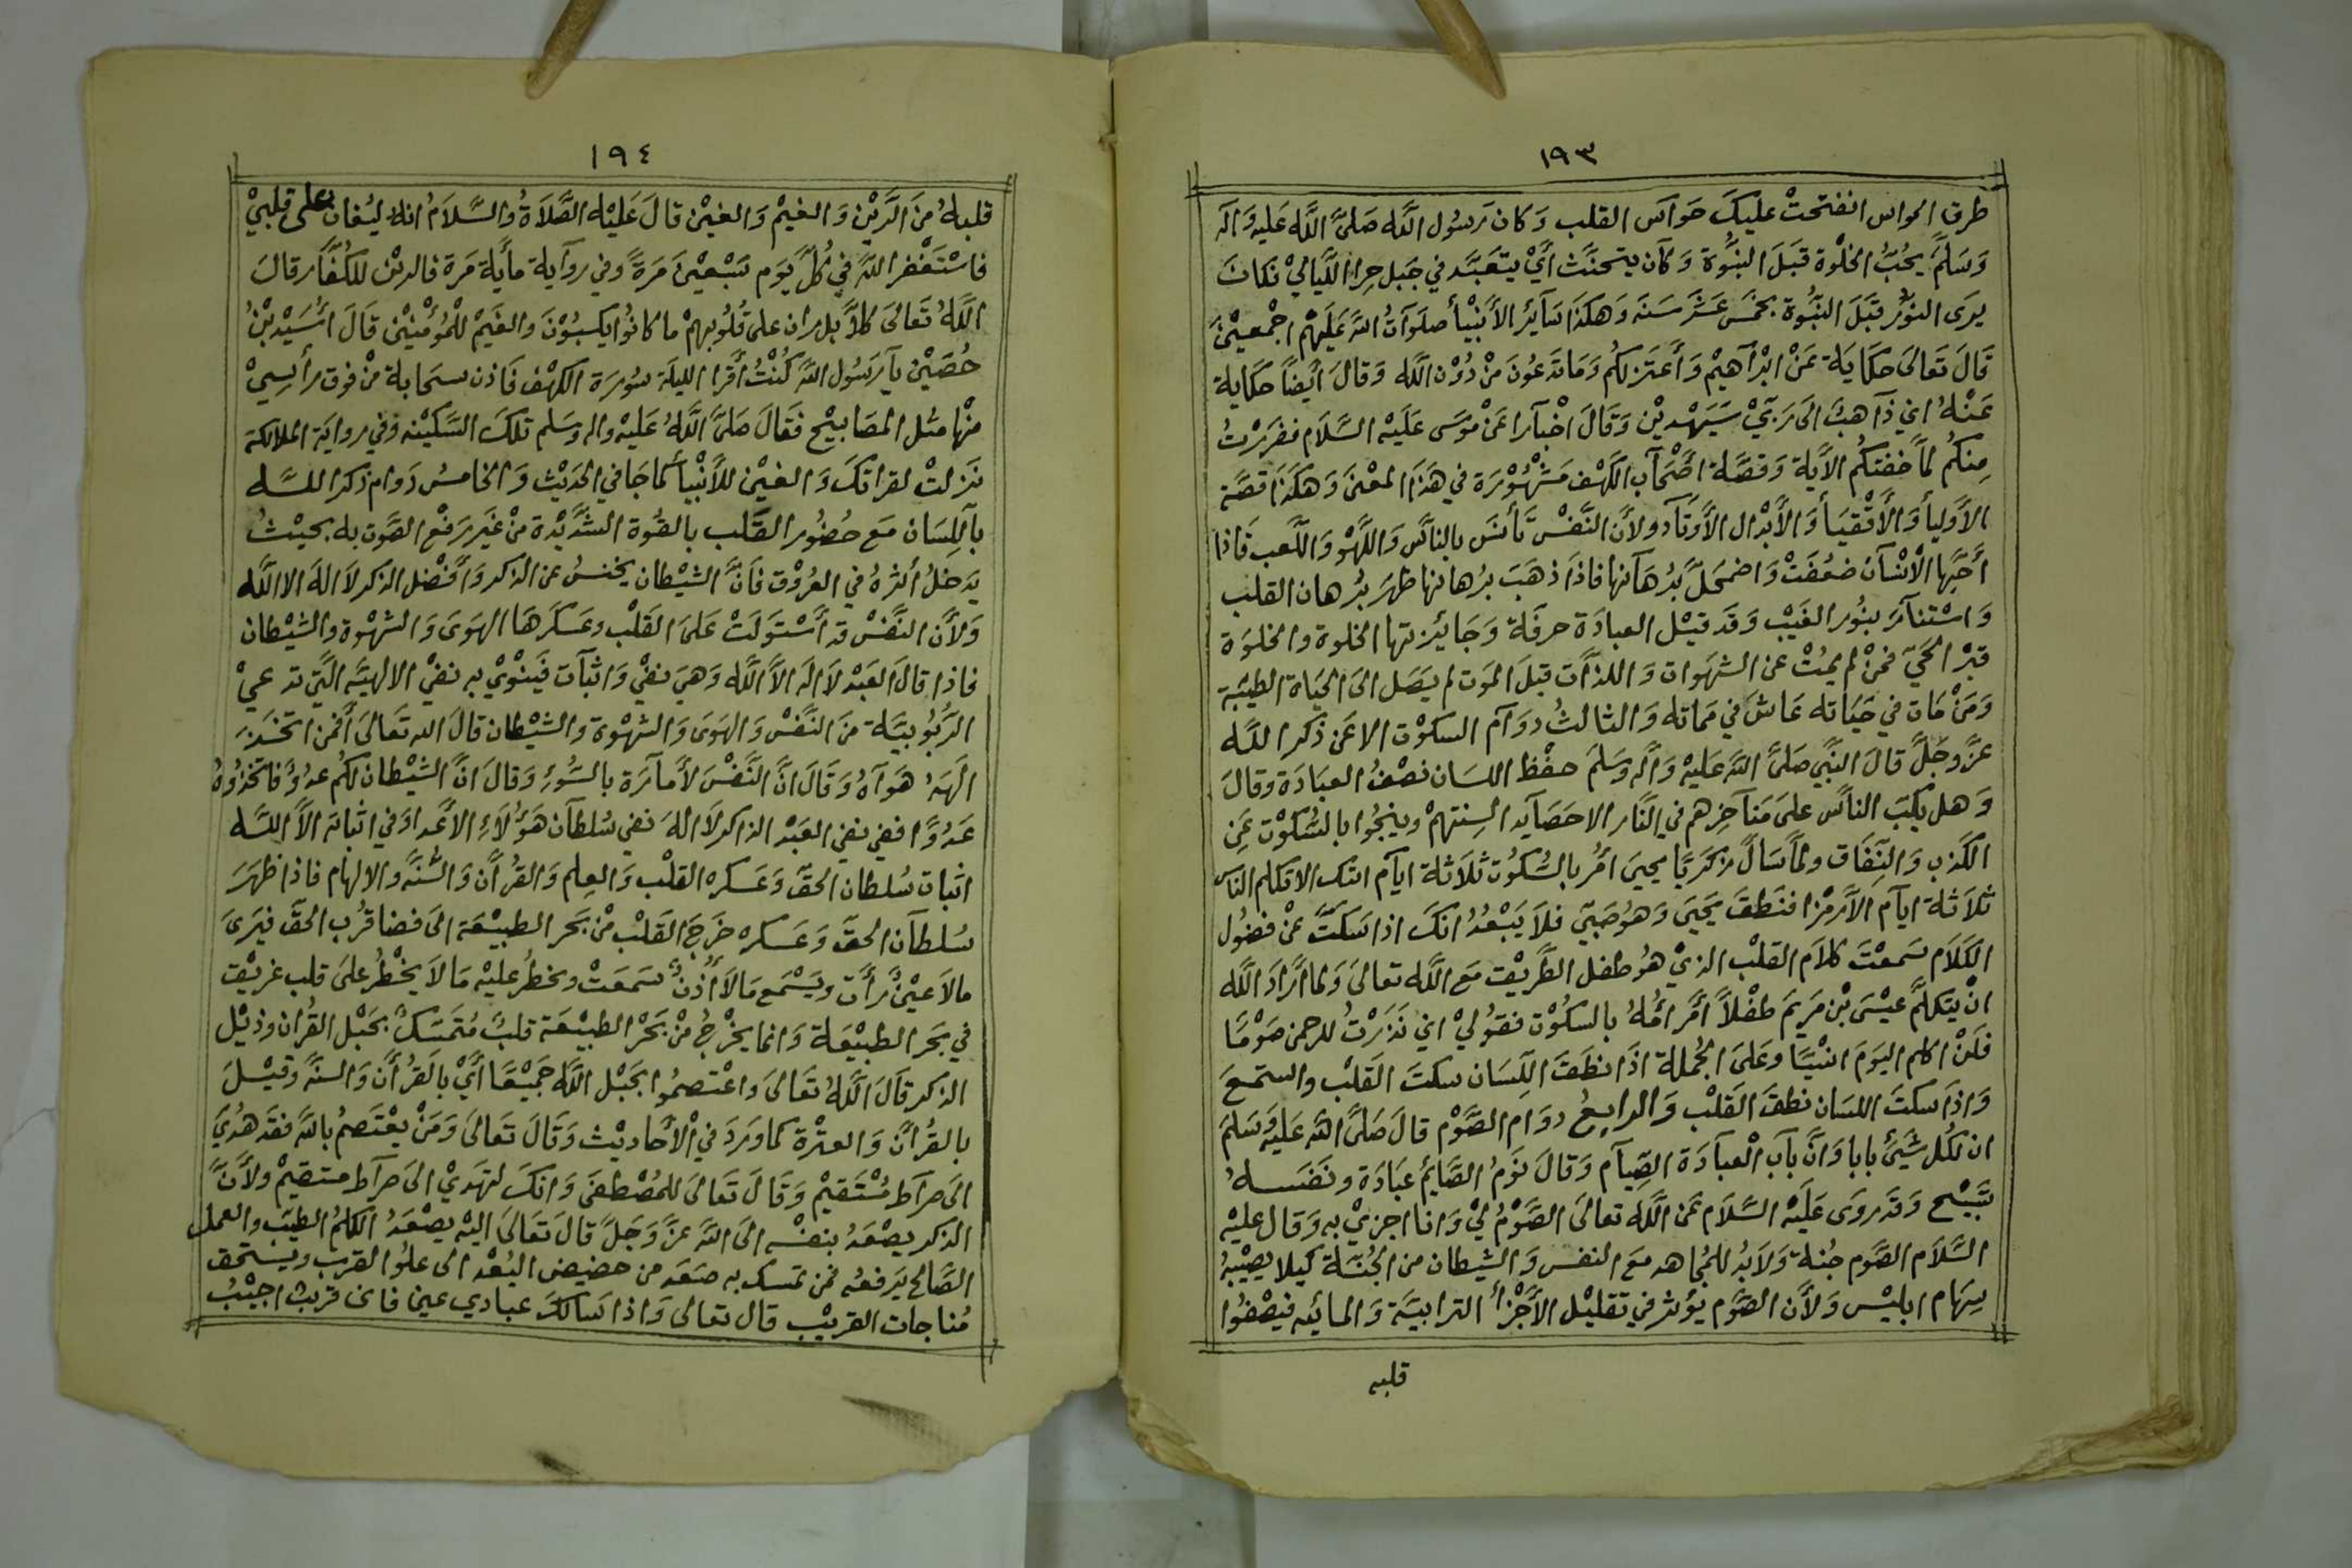 ١٩٣
طرق الحواس انفتحتْ عليكَ حَوآس القلب وَكان رَسُول اللَّه صَلىَّ اللَّه عَليه وَاله
وَسَلمَّ يحُبُّ الخلْوة قبَلَ النبُّوة وَكآن يتحنَّث أيْ يتعَبَّد في جَبل حِرا اللَّيَاليْ فكانَ
يرىَ النوُّر قَبَلَ النبَّوة بخمَس عَشرَ سَنَه وَهكذَا سَآيرُ الأَنبْيأ صلَوآتُ اللهَّ عَلَيهْم اجْمعيْنَ
قَالَ تَعالىَ حكَايَة عَنْ ابْرآهيْم وَأَعتَزلكمُ وَمَا تَدعوُنَ منْ دُوْن اللَّه وَقالَ أيَضاً حكَاية
عَنْهُ اني ذآهبُ الىَ رَبّيْ سَيَهْديْن وَقَالَ اخْبآرا عَنْ موُسَى عَليَه السَّلَام ففرَرْتُ
مِنكمُ لمَّا خفتكُم الآيَة وَقصَّة أصْحَآب الكَهْف مَشْهُوْرَة في هَذَا المعْنىَ وَهكَذَا قصَّة
الأوَليأ وَالأتْقيَأ وَالأَبْدال الأوَتآد ولأن النَّفسْ تَأنسَ بالناَّس وَاللَّهوْ وَاللَّعب فَاذا
أحَبَّها الْانْسَآن ضعُفَتْ وَاضمحَلَّ بُرهَآنها فاذَا ذهَبَ برُهانها ظهرَ برُهان القلب
وَاسْتنآرَ بنوُر الغَيْب وَقَد قيْل العبادَة حرفَة وَجَائيزتها الخلوة والخلوَة
قبرْ الحَيّ فمنْ لم يمُتْ عن الشهَوات وَاللذَّات قبلَ الموَت لم يصَل الىَ الحيَاة الطيبَة
وَمَنْ مَات في حيَاته عَاشَ في مَماته وَالثالثُ دوَآم السكوْت الا عَن ذَكر اللَّه
عزَّ وجَلَّ قالَ النَّبي صَلىَّ اللهَّ عَليَهْ وَآله وَسَلمَ حفْظ اللسَان نصْفُ العبَادَة وقالَ
وَهل يكبَ الناَّس علىَ مَنآخرِهم في النَّار الا حَصَآيد السِنتهمْ وينجُوا بالسُّكوْت عَن
الكَذب وَالنِّفَاق ولماَّ سَالَ زكرَياَّ يحيىَ أمُر بالسُّكوُت ثَلاثَة ايآم انتك الا تكلم النَاس
ثَلاثَة ايآم الاَّ رمْزا فنَطقَ يَحيىَ وَهوُ صَبيّ فلاَ يَبْعُدُ انكَ اذا سَكتَّ عَنْ فضوُل
الكَلاَم سَمعْتَ كلاَم القلْب الذيْ هوُ طفل الطَّريْقت مَع اللَّه تعالىَ وَلما أرَادَ اللَّه
انْ يَتكلمَّ عيْسىَ بْن مَريَم طفْلاً أمَر أمَُّهُ بالسكُوْت فقوُليْ اني نَذَرْتُ للرحمن صَوْماً
فَلنْ اكلم اليوَمَ انسْيَّا وعَلىَ الجُملة اذَا نطَقَ اللّسَان سكتَ القَلبْ واستمَعَ
وَاذَا سكتَ اللسَان نطقَ القَلبْ وَالرابعُ دوَام الصَّوْم قالَ صَلىَّ اللهَّ عَليهَ وَسَلمَ
ان لكُل شيَئ بابا وَانَّ بآبَ الْعبآدَة الصِّيآم وَقالَ نوَمُ الصَّايمُ عبَادَة ونَفَسَهُ
تَسْبيْح وَقَد رَوَى عَلَيْه السَّلاَم عَن اللَّه تعالىَ الصَّوْمُ ليْ وَانا اجزيْ به وَقال عليْه
السَّلاَم الصَّوم جُنة وَلاَبدُ للمجُاهد معَ النفس وَالشيطان من الجُنَّة كيلا يصيْبهُ
سِهَام ابليْس وَلأن الصَّوم يوُثر في تقليْل الأَجْزأ الترابيَّة وَالمائيه فيصْفوُا
قلبه
١٩٤
قلبهُ منَ الرَّيْن وَالغيمْ وَالغينْ قالَ عَليْه الصَّلاَةُ والسَّلاَمُ انه ليُغان على قلبيْ
فاسْتَغْفر اللهَّ في كُلّ يوَم سَبْعيْنَ مَرَةً وفي روآية مأية مَرة فالريْن للكفُاَّر قالَ
اللَّهُ تَعَالىَ كلاَّ بل ران على قلُوبهمْ ما كانوُا يكسبوُنَ والغَيمْ للمُؤْمنيْن قالَ أسَُيْد بْنُ
حُصَيْن يآرسُول الله كُنْتُ أقَرا الليلَة سوُرَة الكهْف فَاذن سحَابة منْ فوق رأسيْ
منْها مثل المصَابيْح فَقالَ صَلىَّ اللَّهُ عَليْه واله وسَلم تلكَ السَّكيْنه وَفي روايَة الملائكة
نَزَلتْ لقراتكَ وَالغينْ للأنَبْيأ كما جَا في الحديْث وَالخامسُ دَوام ذكر اللَّه
بآلِلسَان مَعَ حُضوُر القلَب بالقوُة الشَّديْدة منْ غيَر رفْع الصَّوت به بحيْثُ
يَدخلُ أثرهُ في العرُوْق فاَنَّ الشيْطان يخنسُ عن الذكر وَأفَْضل الذكر لاَ الَهَ الا اللَّه
وَلأَن النَّفسْ قد أسْتوَلَتْ عَلىَ القَلبْ وعَسكرَهَا الهوَىَ وَالشهْوة والشيْطان
فاذا قالَ العَبْد لاَ الَه الاَّ اللَّه وَهيَ نفيْ وَاثبآت فيَنْويْ به نفيْ الالهيَّه الَّتي تدعيْ
الرُّبُوُبيَّة منَ النَّفسْ وَالهوَىَ وَالشهْوَة والشيْطان قالَ الله تَعالىَ أفَمن اتخَذَ
الَهَهُ هَوَآهُ وَقالَ انَّ النَّفسَْ لأَمآرَة بالسُّوْء وَقالَ انَّ الشيْطان لكُم عدوُّ فاتخّذوُهُ
عَدوُاًّ ففي نفي العَبْد الذاكر لاَ الهَ نفي سُلطآن هَؤُلاَء الأَعْدا وَفي اثباته الاَّ اللَّه
اثبات سُلطان الحقّ وَعَسكره القلْب وَالعِلم وَالقرُآن وَالسُّنَّه والالهام فاذا ظهَرَ
سُلطآن الحقّ وَعَسكره خَرجَ القَلبْ منْ بَحر الطبيْعة الىَ فضا قرُب الحقّ فيَرىَ
مالاَ عَيْنُ رأَت ويَسْمَع مَالاَ أذُنُ سَمعَتْ ويخطرُ عليْه مَا لاَ يخْطُر علىَ قلب غريْق
في بَحر الطبيْعَة وَانما يخْرجُ منْ بَحْر الطبيْعَة قلبُ مُتَمَسّكُ بحَبْل القرُان وذيْل
الذكر قالَ اللَّهُ تعَالىَ واعْتصمُوا بحَبْل اللَّه جَميْعًا أيْ بالقرُأن وَالسنَّه وَقيْلَ
بالقرُآن وَالعترْة كما وَرَدَ في الْأحَاديْث وَقالَ تَعَالىَ وَمَنْ يعْتَصمُ باللهَّ فقَد هُديَ
الىَ صرآط مُسْتَقيْم وَقَالَ تَعَالىَ للمصُْطفىَ وَانكَ لتهَديْ الىَ صرآط مستقيْم ولأَنَّ
الذكر يَصْعَدُ بنفسْه الىَ اللهَّ عزَّ وَجَلَّ قالَ تَعَالىَ اليْه يصْعَدُ الكلمُ الطيّب والعمل
الصَّالح يَرفعهُ فمن تمسك به صَعَد من حضيض البُعْد الى علوُا القرب ويستحق
مُناجات القريْب قال تعالى وَاذا سَالكَ عبادي عني فاني قريبُ اجيْبُ